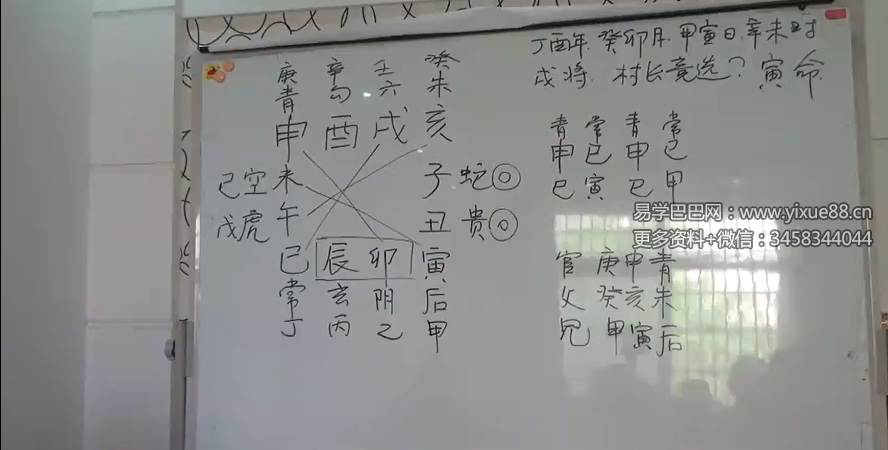 丁酉年.癸卯月.甲寅日.辛未时
戌将.村长竞选?寅命.
庚 辛 壬 癸
青 勾 六 朱
申 酉 戌 亥
己空未 子蛇◎
戊虎午 丑贵◎
巳 辰 卯 寅
常 玄 阴 后
丁 丙 乙 甲
青 常 青 常
申 巳 申 巳
巳 寅 巳 甲
官 庚 申 青
父 癸 亥 朱
兄 甲 寅 后
易学巴巴网:www.yixue88.cn
更多资料+微信:3458344044